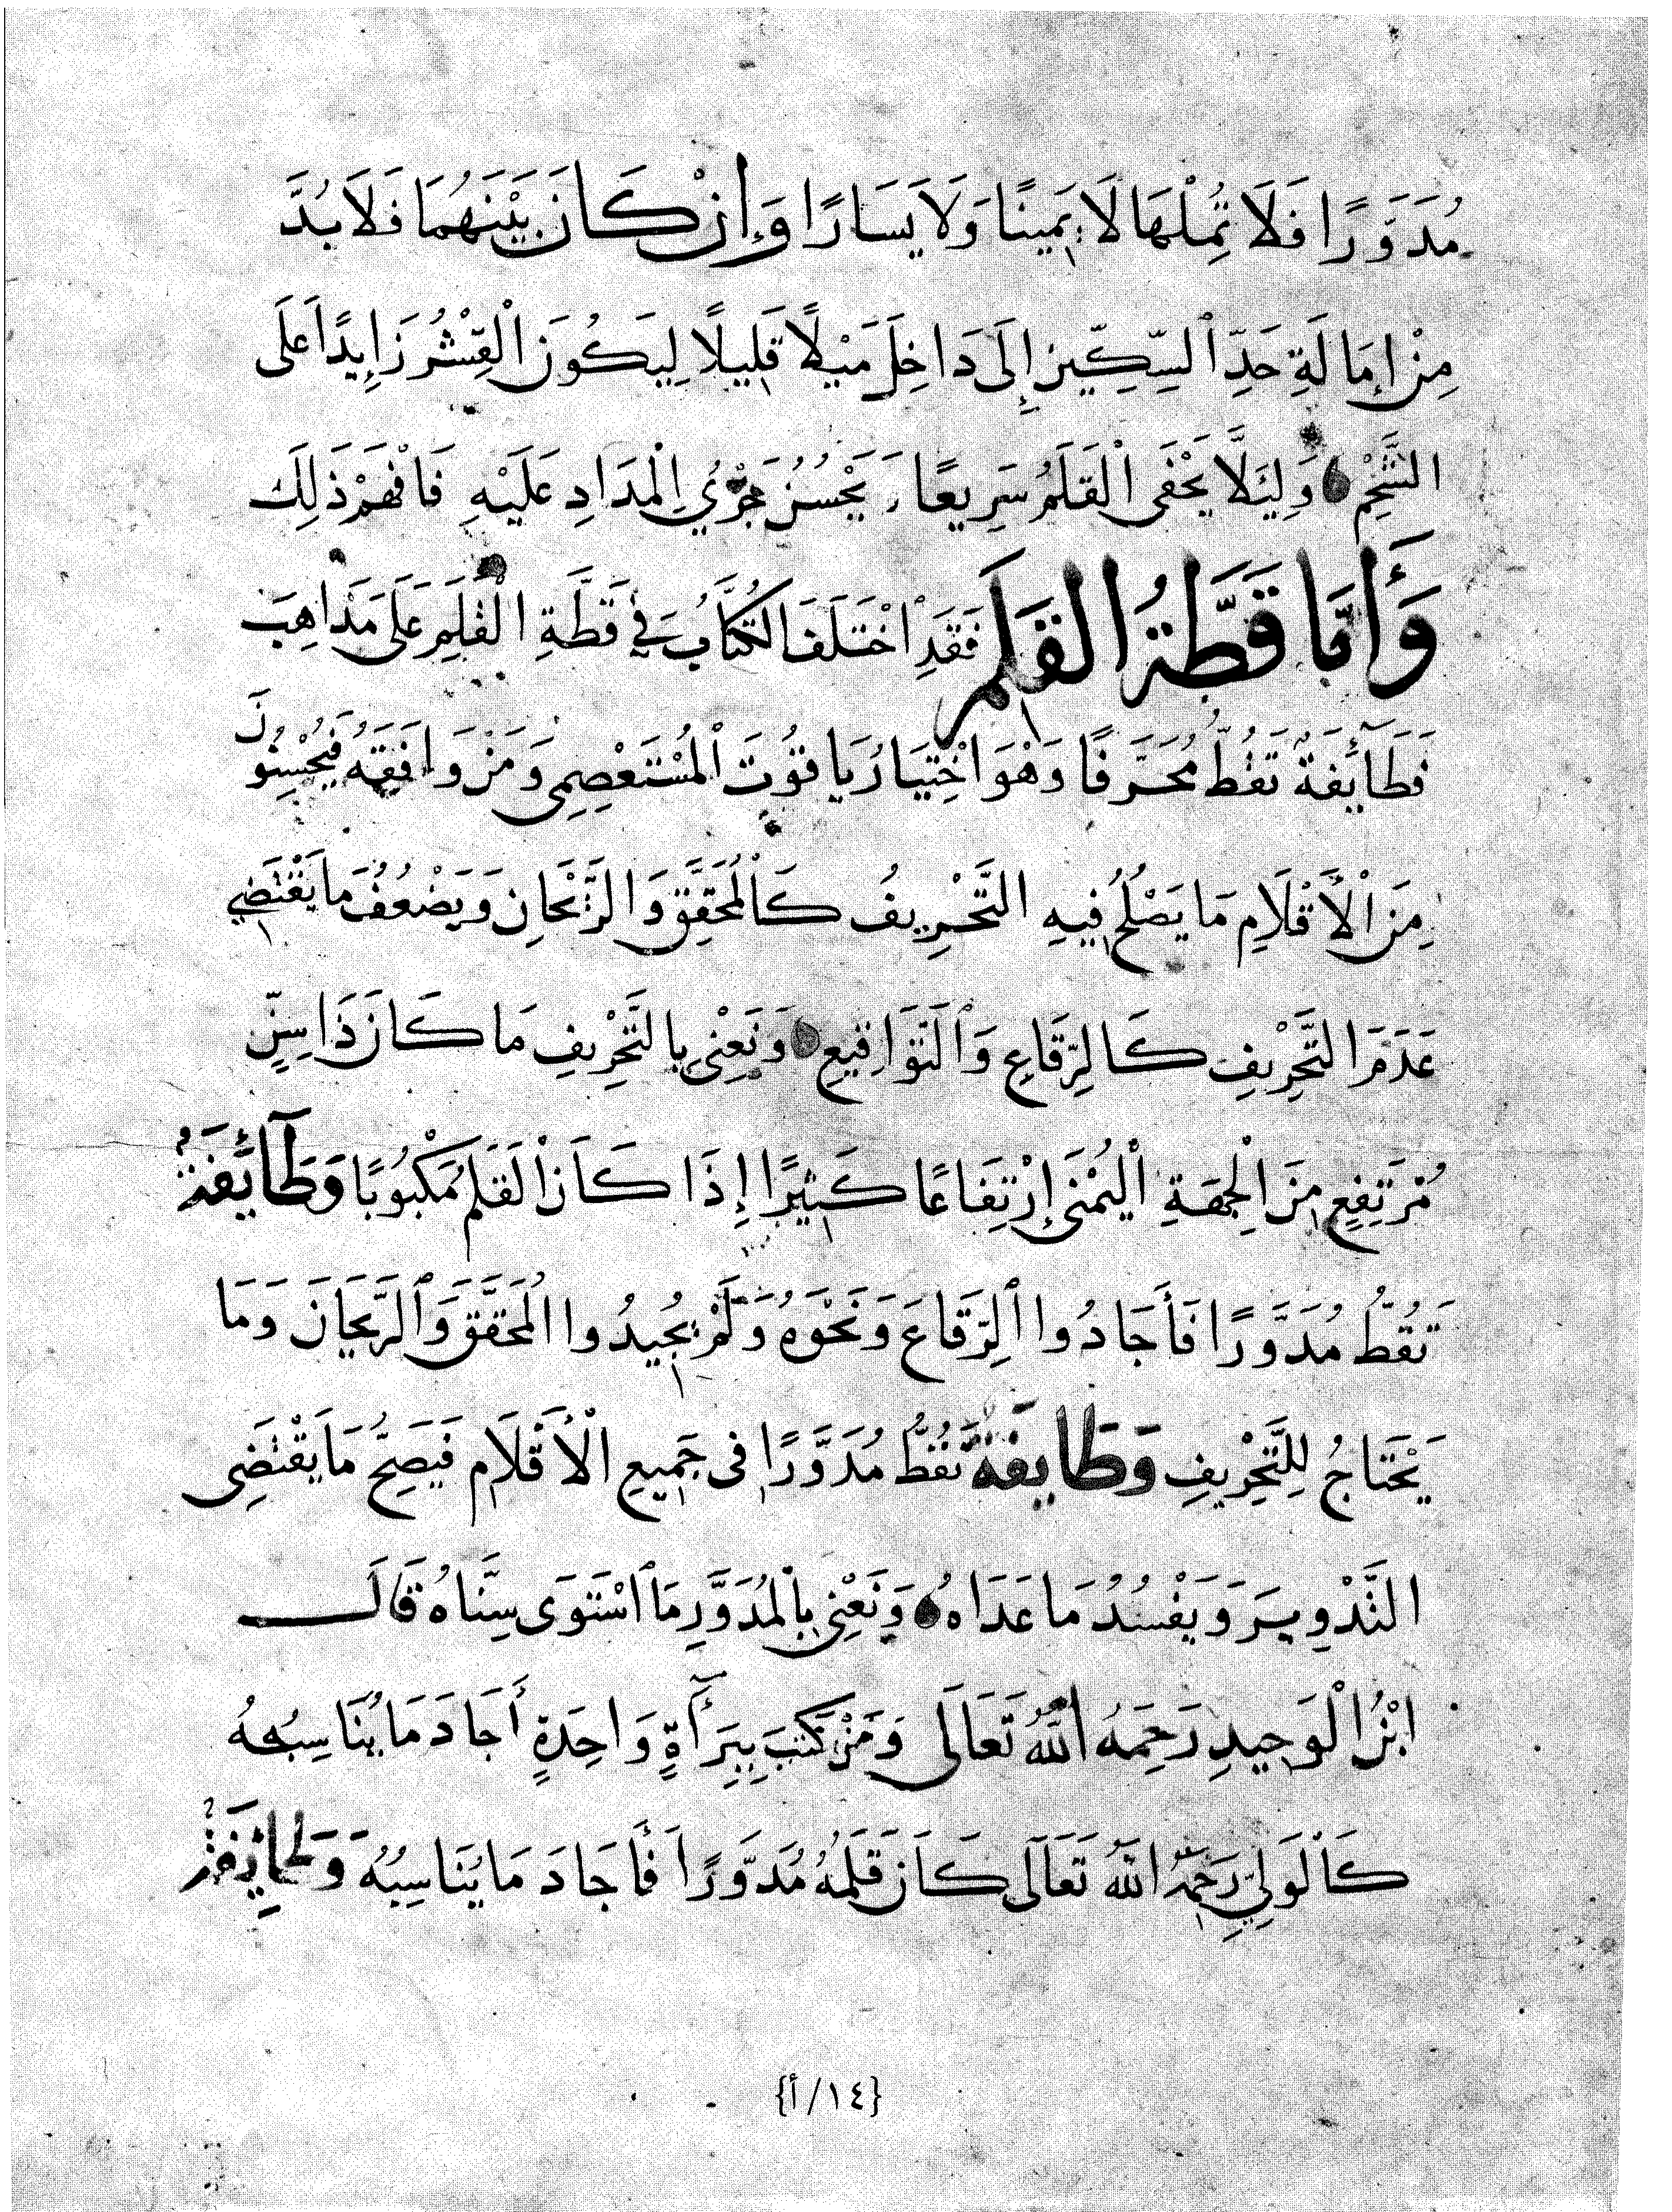 مُدَوَّرًا فَلَا تُمِلْهَا لَا يَمِينًا وَلَا يَسَارًا وَإِنْ كَانَ بَيْنَهُمَا فَلَا بُدَّ
مِنْ إِمَالَةِ حَدِّ السِّكِّينِ إِلَى دَاخِلَ مَيْلًا قَلِيلًا لِيَكُونَ الْقِشْرُ زَايِدًا عَلَى
الشَّحْمِ وَلِيَلَّا يَحْفَى الْقَلَمُ سَرِيعًا، يَحْسُنُ جَرْيُ الْمِدَادِ عَلَيْهِ فَافْهَمْ ذَلِكَ
وَأَمَّا قَطَّةُ الْقَلَمِ فَقَدِ اخْتَلَفَ الْكُتَّابُ فِي قَطَّةِ الْقَلَمِ عَلَى مَذَاهِبَ
فَطَآئِفَةٌ تَقُطُّ مُحَرَّفًا وَهْوَ اخْتِيَارُ يَاقُوتَ الْمُسْتَعْصِمِى وَمَنْ وَافَقَهُ فَيُحْسِنُونَ
مِنَ الْأَقْلَامِ مَا يَصْلُحُ فِيهِ التَّحْرِيفُ كَالْمُحَقَّقِ وَالرَّيْحَانِ وَيَضْعُفُ مَا يَقْتَضِي
عَدَمَ التَّحْرِيفِ كَالرِّقَاعِ وَالتَّوَاقِيعِ وَنَعْنِى بِالتَّحْرِيفِ مَا كَانَ ذَا سِنٍّ
مُرْتَفِعٍ مِنَ الْجِهَةِ الْيُمْنَى إِرْتِفَاعًا كَثِيرًا إِذَا كَانَ الْقَلَمُ مَكْبُوبًا وَطَآئِفَةٌ
تَقُطُّ مُدَوَّرًا فَأَجَادُوا الرِّقَاعَ وَنَحْوَهُ وَلَمْ يُجِيدُوا الْمُحَقَّقَ وَالرَّيْحَانَ وَمَا
يَحْتَاجُ لِلتَّحْرِيفِ وَطَايِفَةٌ تَقُطُّ مُدَوَّرًا فى جَمِيعِ الْأَقْلَامِ فَيَصِحُّ مَا يَقْتَضِى
التَّدْوِيرَ وَيَفْسُدُ مَا عَدَاهُ وَنَعْنِى بِالْمُدَوَّرِ مَا اسْتَوَى سِنَّاهُ قَالَ
ابْنُ الْوَحِيدِ رَحِمَهُ اللهُ تَعَالَى وَمَنْ كَتَبَ بِبَرَأَةٍ وَاحِدَةٍ أَجَادَ مَا يُنَاسِبُهُ
كَالْوَلِيِّ رَحِمَهُ اللهُ تَعَالَى كَانَ قَلَمُهُ مُدَوَّرًا فَأَجَادَ مَا يُنَاسِبُهُ وَطَايِفَةٌ
{١٤/أ}